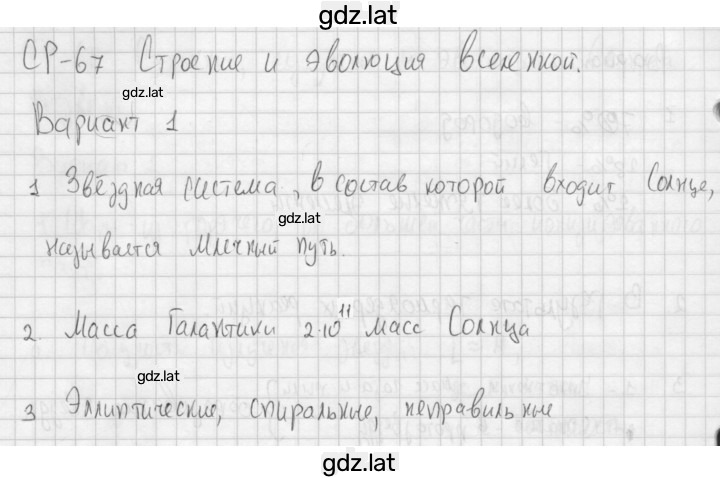 gdz.lat
СР-67 Строение и эволюция вселенной.
gdz.lat
Вариант 1
1 Звёздная система, в состав которой входит Солнце,
gdz.lat
называется Млечный путь.
2. Масса Галактики 2·10¹¹ масс Солнца
gdz.lat
3 Эллиптические, спиральные, неправильные
gdz.lat